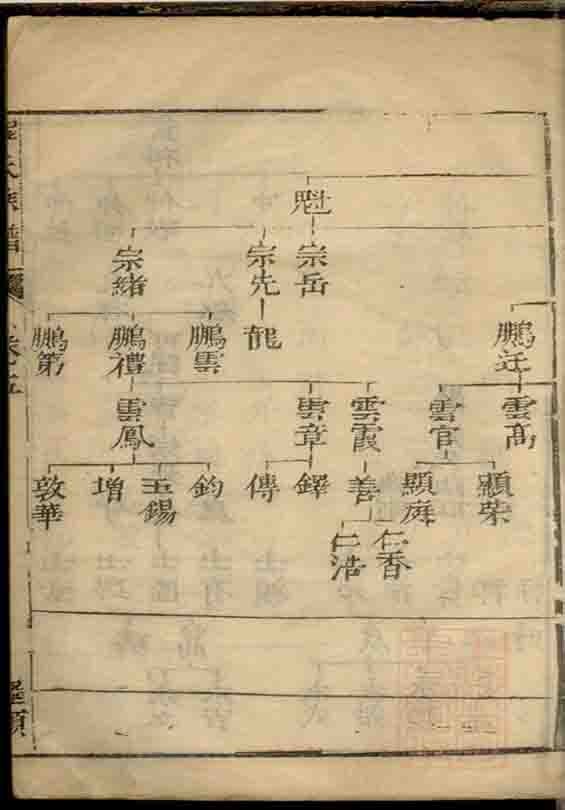 魁
宗岳
宗先
宗緒
鵬迁
龍
鵬雲
鵬禮
鵬第
雲高
雲官
雲霞
雲章
雲鳳
顯荣
顯庭
善
鐸
傳
鈞
玉錫
增
敦華
仁香
仁浩
氏族譜